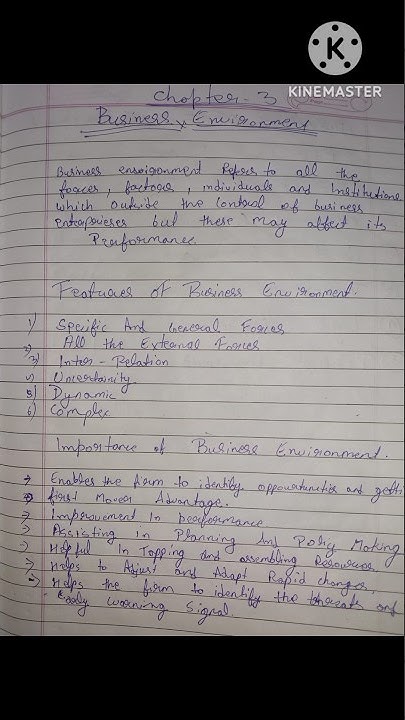 KINEMASTER
Chapter-3
Business Environment
Business environment Refers to all the
forces, factors, individuals and Institutions
which outside the control of business
enterprises but these may affect its
Performance.
Features of Business Environment.
1) Specific And General Forces
2) All the External Forces
3) Inter-Relation
4) Uncertainity
5) Dynamic
6) Complex
Importance of Business Environment.
→ Enables the firm to identify oppourtunities and getti
first Mover Advantage.
→ Improvement in performance
→ Assisting in Planning And Policy Making
→ Helpful In Tapping and assembling Resources
→ Helps to Adjust and Adapt Rapid changes.
→ Helps the firm to identify the threats and
Early worning Signal.